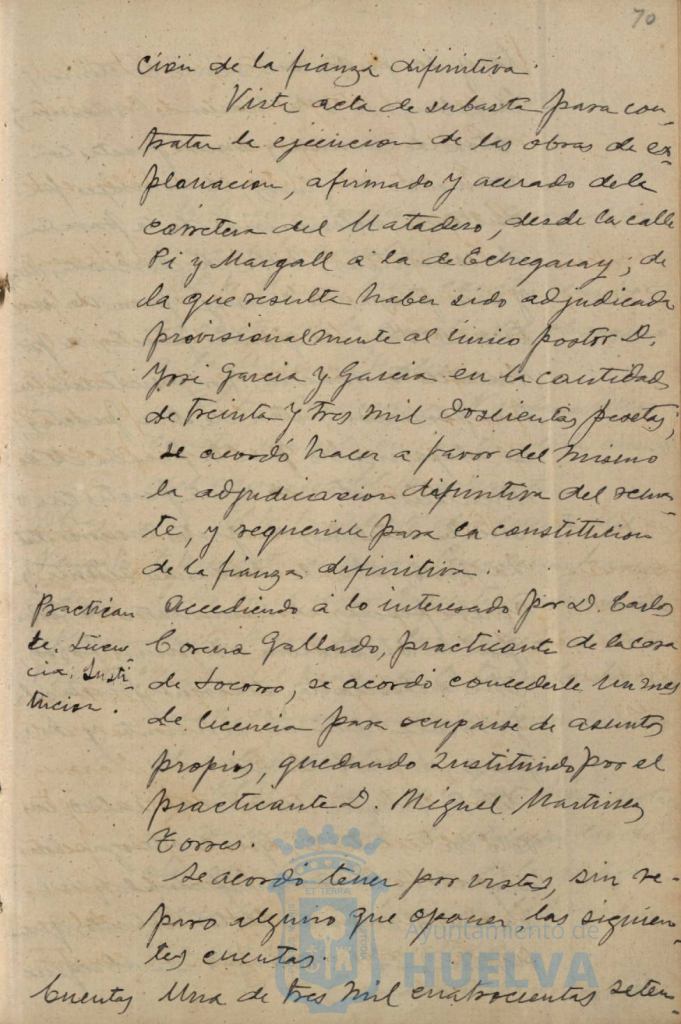 70
ción de la fianza difinitiva.
Vista acta de subasta para con-
tratar la ejecucion de las obras de ex-
planacion, afirmado y acerado de la
carretera del Matadero, desde la calle
Pi y Margall á la de Echegaray; de
la que resulta haber sido adjudicada
provisionalmente al único postor D.
José Garcia y Garcia en la cantidad
de treinta y tres mil doscientas pesetas;
se acordó hacer a favor del mismo
la adjudicacion difinitiva del rema-
te, y requerirle para la constitucion
de la fianza difinitiva.
Practican
te. Licen-
cia. Susti-
tucion.
Accediendo á lo interesado por D. Carlos
Gallardo, practicante de la casa
de Socorro, se acordó concederle un mes
de licencia para ocuparse de asuntos
propios, quedando sustituido por el
practicante D. Miguel Martinez
Torres.
Se acordó tener por vistas, sin re-
paro alguno que oponer las siguien-
tes cuentas.
Cuentas Una de tres mil cuatrocientas seten-
Ayuntamiento de
HUELVA